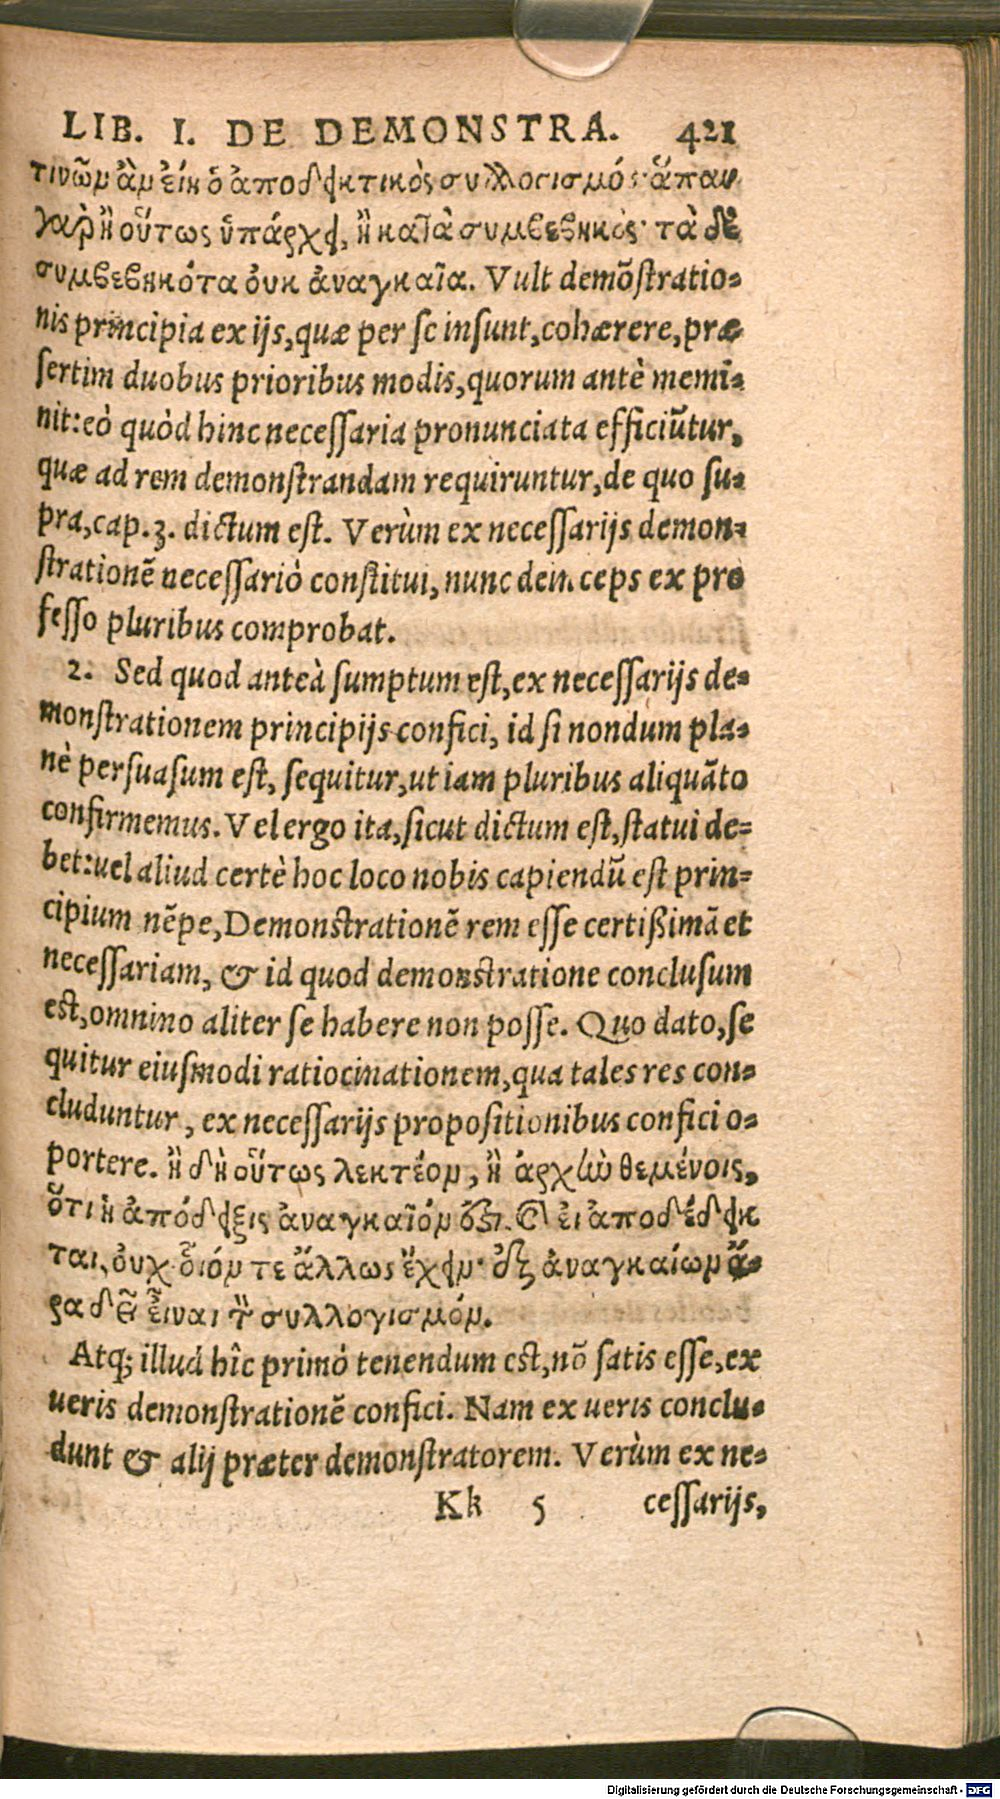 LIB. I. DE DEMONSTRA. 421
τινῶν ἂν εἴη ὁ ἀποδεικτικὸς συλλογισμός· ἅπαν
γὰρ ἢ οὕτως ὑπάρχει, ἢ κατὰ συμβεβηκός· τὰ δὲ
συμβεβηκότα οὐκ ἀναγκαῖα. Vult demõstratio=
nis principia ex ijs, quæ per se insunt, cohærere, præ
sertim duobus prioribus modis, quorum antè memi=
nit: eò quòd hinc necessaria pronunciata efficiũtur,
quæ ad rem demonstrandam requiruntur, de quo su=
pra, cap. 3. dictum est. Verùm ex necessarijs demon=
strationẽ necessariò constitui, nunc deinceps ex pro
fesso pluribus comprobat.
2. Sed quod anteà sumptum est, ex necessarijs de=
monstrationem principijs confici, id si nondum pla=
nè persuasum est, sequitur, ut iam pluribus aliquãto
confirmemus. Vel ergo ita, sicut dictum est, statui de=
bet: uel aliud certè hoc loco nobis capiendũ est prin=
cipium nẽpe, Demonstrationẽ rem esse certißimã et
necessariam, & id quod demonstratione conclusum
est, omnino aliter se habere non posse. Quo dato, se
quitur eiusmodi ratiocinationem, qua tales res con=
cluduntur, ex necessarijs propositionibus confici o=
portere. ἢ δὴ οὕτως λεκτέον, ἢ ἀρχὴν θεμένοις,
ὅτι ἡ ἀπόδειξις ἀναγκαῖόν ἐστι. καὶ εἰ ἀποδέδεικ
ται, οὐχ οἷόν τε ἄλλως ἔχειν· ἐξ ἀναγκαίων ἄ=
ρα δεῖ εἶναι τὸν συλλογισμόν.
Atq; illud hîc primò tenendum est, nõ satis esse, ex
ueris demonstrationẽ confici. Nam ex ueris conclu=
dunt & alij præter demonstratorem. Verùm ex ne=
Kk 5 cessarijs,
Digitalisierung gefördert durch die Deutsche Forschungsgemeinschaft - DFG